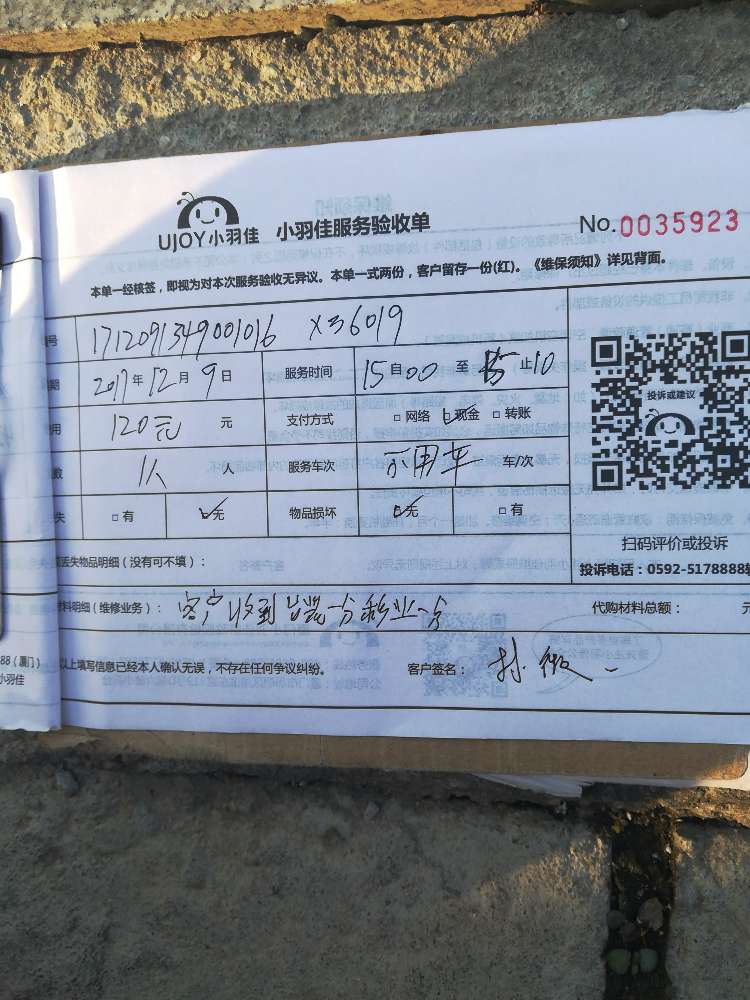 UJOY小羽佳 小羽佳服务验收单 No.0035923
本单一经核签，即视为对本次服务验收无异议。本单一式两份，客户留存一份(红)。《维保须知》详见背面。
号 1712091349001016 X36019
期 2017年12月9日 服务时间 15自00 至 止10
用 120元 元 支付方式 □网络 ☑现金 □转账
投诉或建议
数 1人 人 服务车次 不用车 车/次
失 □有 ☑无 物品损坏 ☑无 □有
扫码评价或投诉
丢失物品明细（没有可不填）：
投诉电话：0592-5178888
材料明细（维修业务）： 客户收到 一分 代购材料总额： 元
88（厦门）
小羽佳
以上填写信息已经本人确认无误，不存在任何争议纠纷。 客户签名：